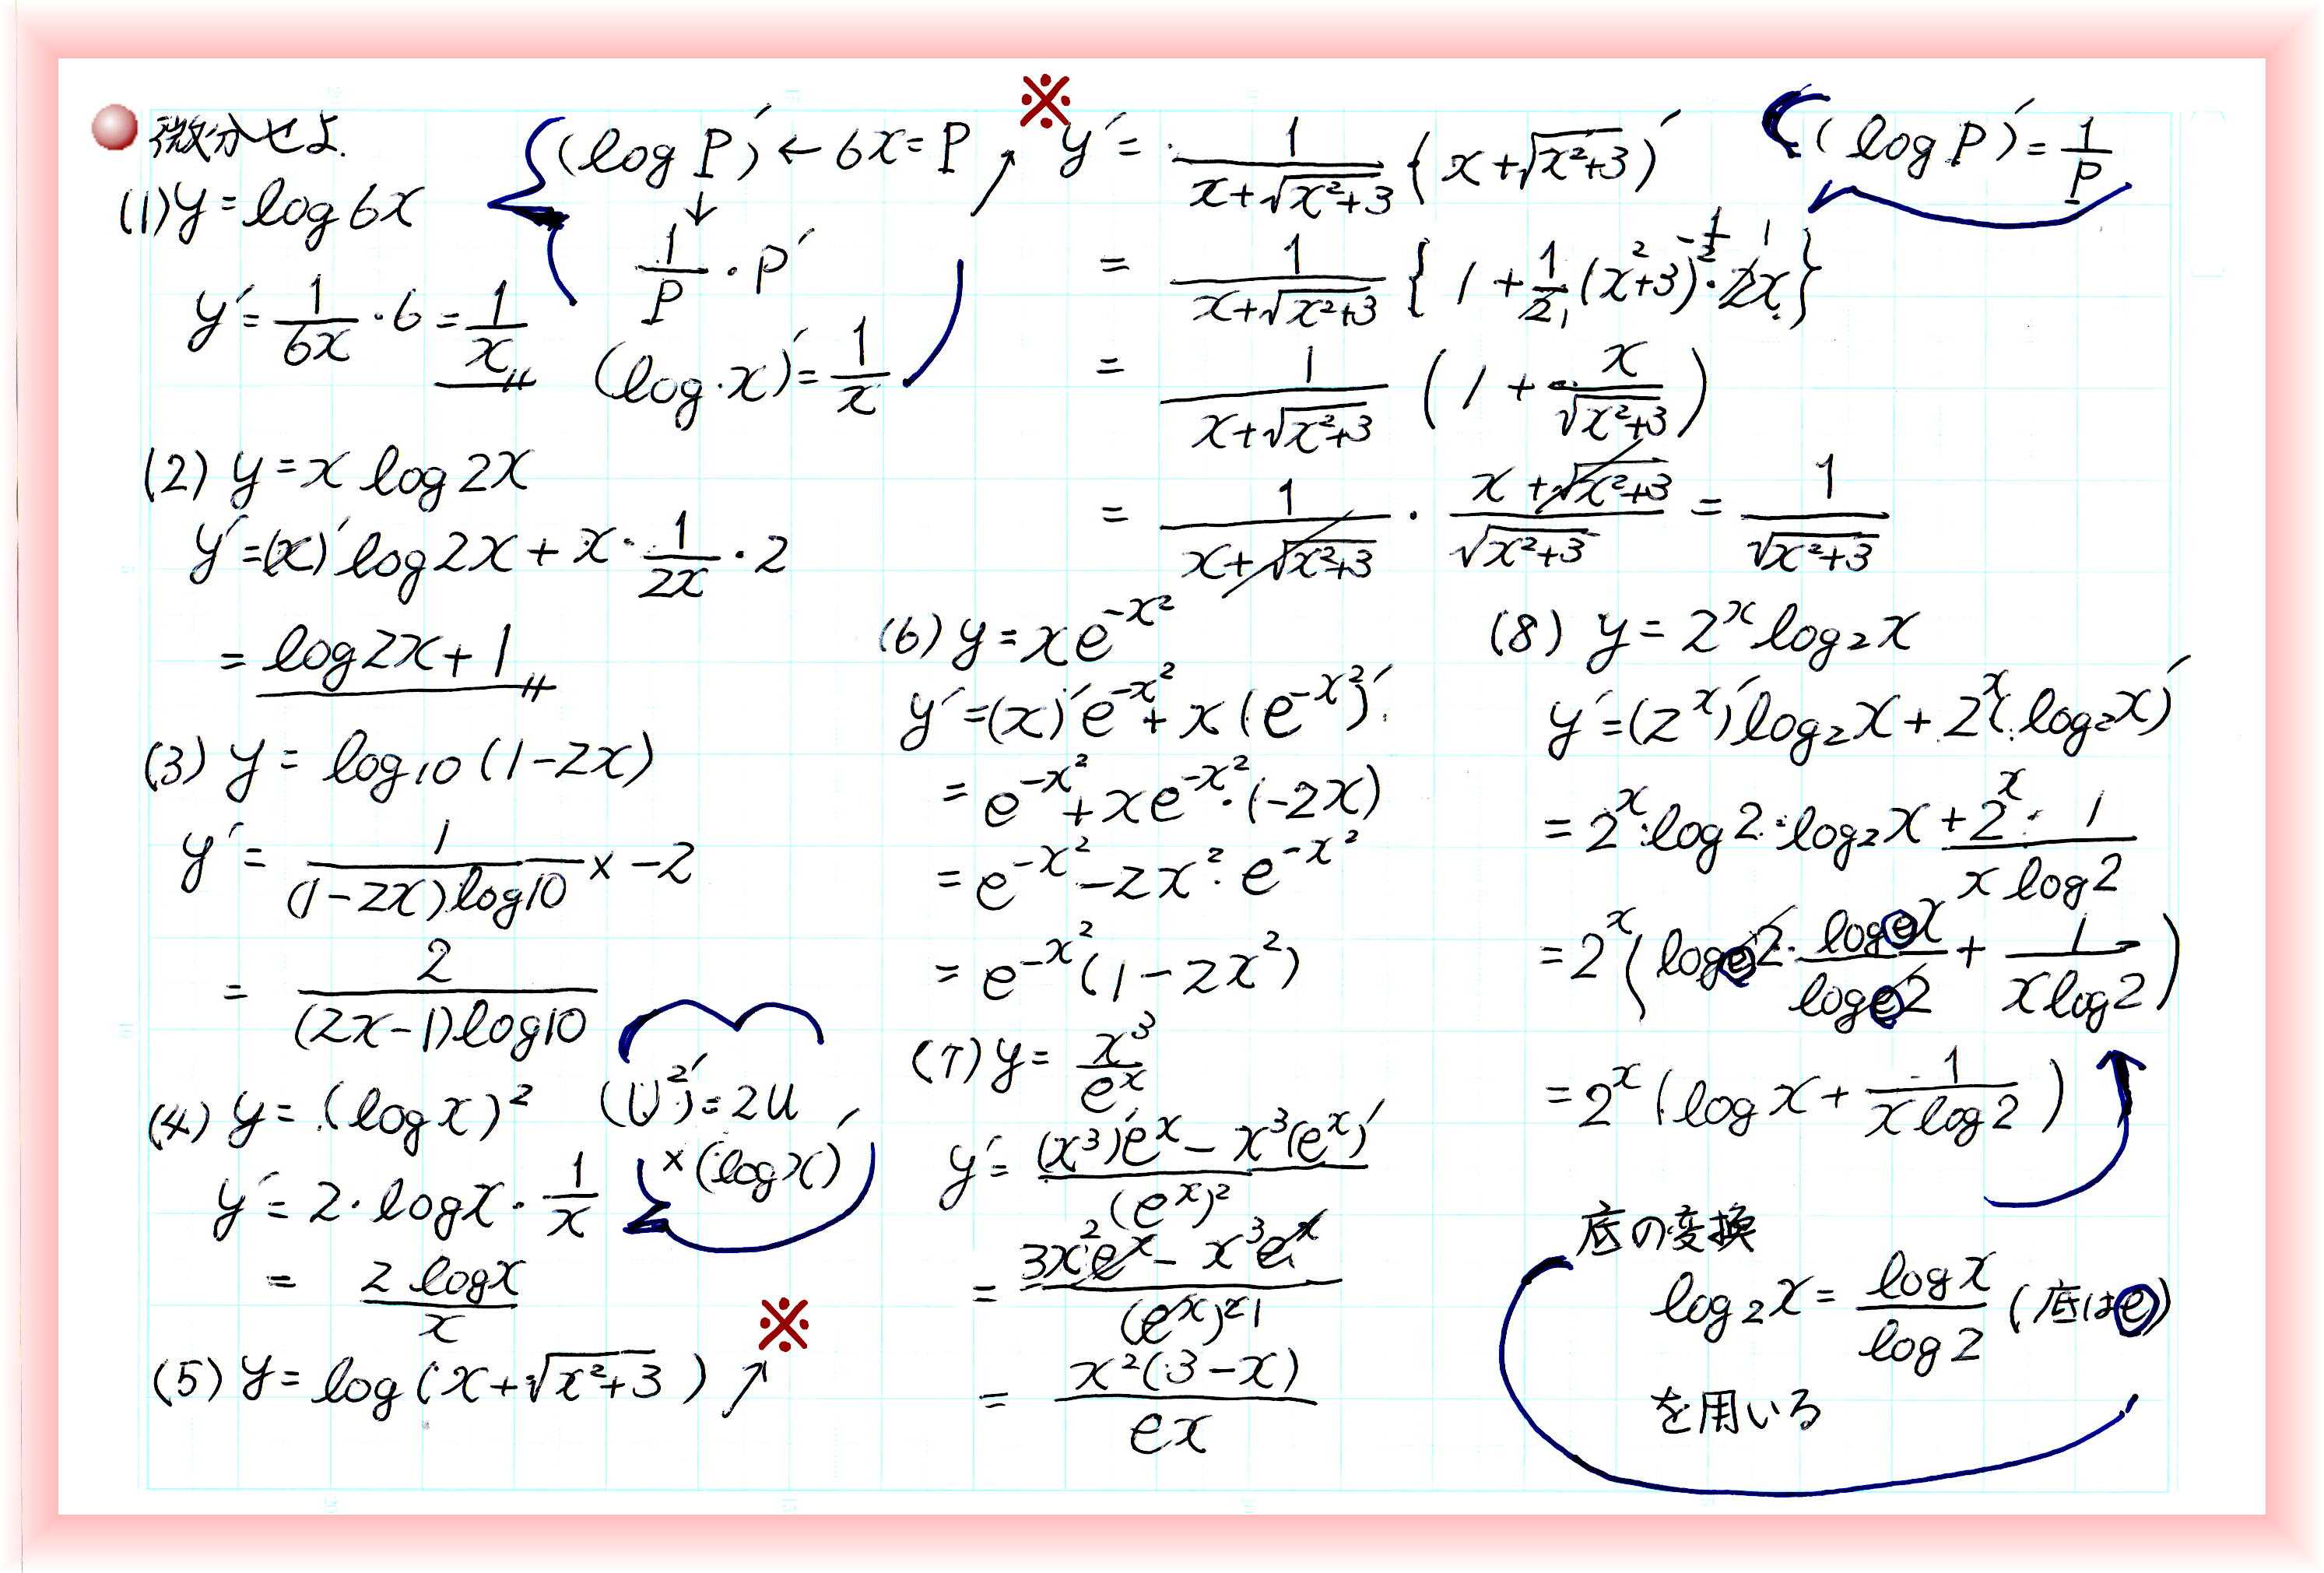 微分せよ.
(1) y = log 6x
y′ = 1/6x · 6 = 1/x
(log P)′ ← 6x = P
↓
1/P · P′
(log x)′ = 1/x
(2) y = x log 2x
y′ = (x)′ log 2x + x · 1/2x · 2
= log 2x + 1
(3) y = log₁₀ (1-2x)
y′ = 1/(1-2x) log 10 × -2
= 2/(2x-1) log 10
(4) y = (log x)²
y′ = 2 · log x · 1/x
= 2 log x/x
(U²)′ = 2U
× (log x)′
(5) y = log (x + √x²+3) ↗ ※
※ y′ = 1/x+√x²+3 { x + √x²+3 )′
(log P)′ = 1/P
= 1/x+√x²+3 { 1 + 1/2 (x²+3)^-1/2 · 2x }
= 1/x+√x²+3 ( 1 + x/√x²+3 )
= 1/x+√x²+3 · x+√x²+3/√x²+3 = 1/√x²+3
(6) y = x e^-x²
y′ = (x)′ e^-x² + x (e^-x²)′
= e^-x² + x e^-x² · (-2x)
= e^-x² - 2x² · e^-x²
= e^-x² (1 - 2x²)
(7) y = x³/eˣ
y′ = (x³)′ eˣ - x³ (eˣ)′/(eˣ)²
= 3x² eˣ - x³ eˣ/(eˣ)² 1
= x² (3 - x)/ex
(8) y = 2ˣ log₂ x
y′ = (2ˣ)′ log₂ x + 2ˣ (log₂ x)′
= 2ˣ · log 2 · log₂ x + 2ˣ · 1/x log 2
= 2ˣ ( logₑ 2 · logₑ x/logₑ 2 + 1/x log 2 )
= 2ˣ ( log x + 1/x log 2 )
底の変換
log₂ x = log x/log 2 (底はe)
を用いる